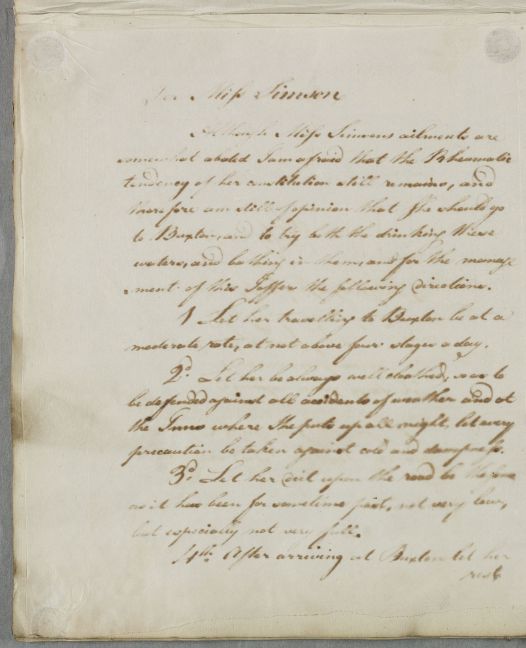 For Miss Simson
Although Miss Simsons ailments are
somewhat abated I am afraid that the Rheumatic
tendency of her constitution still remains, and
therefore am still of opinion that She should go
to Buxton, and to try both the drinking these
waters, and bathing in them, and for the manage
ment of this I offer the following directions.
1 Let her travelling to Buxton be at a
moderate rate, at not above four stages a day.
2d. Let her be always well cloathed, so as to
be defended against all accidents of weather and at
the Inns where She puts up all night, let every
precaution be taken against cold and dampness.
3d. Let her diet upon the road be the same
as it has been for sometime past, not very low,
but especially not very full.
4th. After arriving at Buxton let her
rest